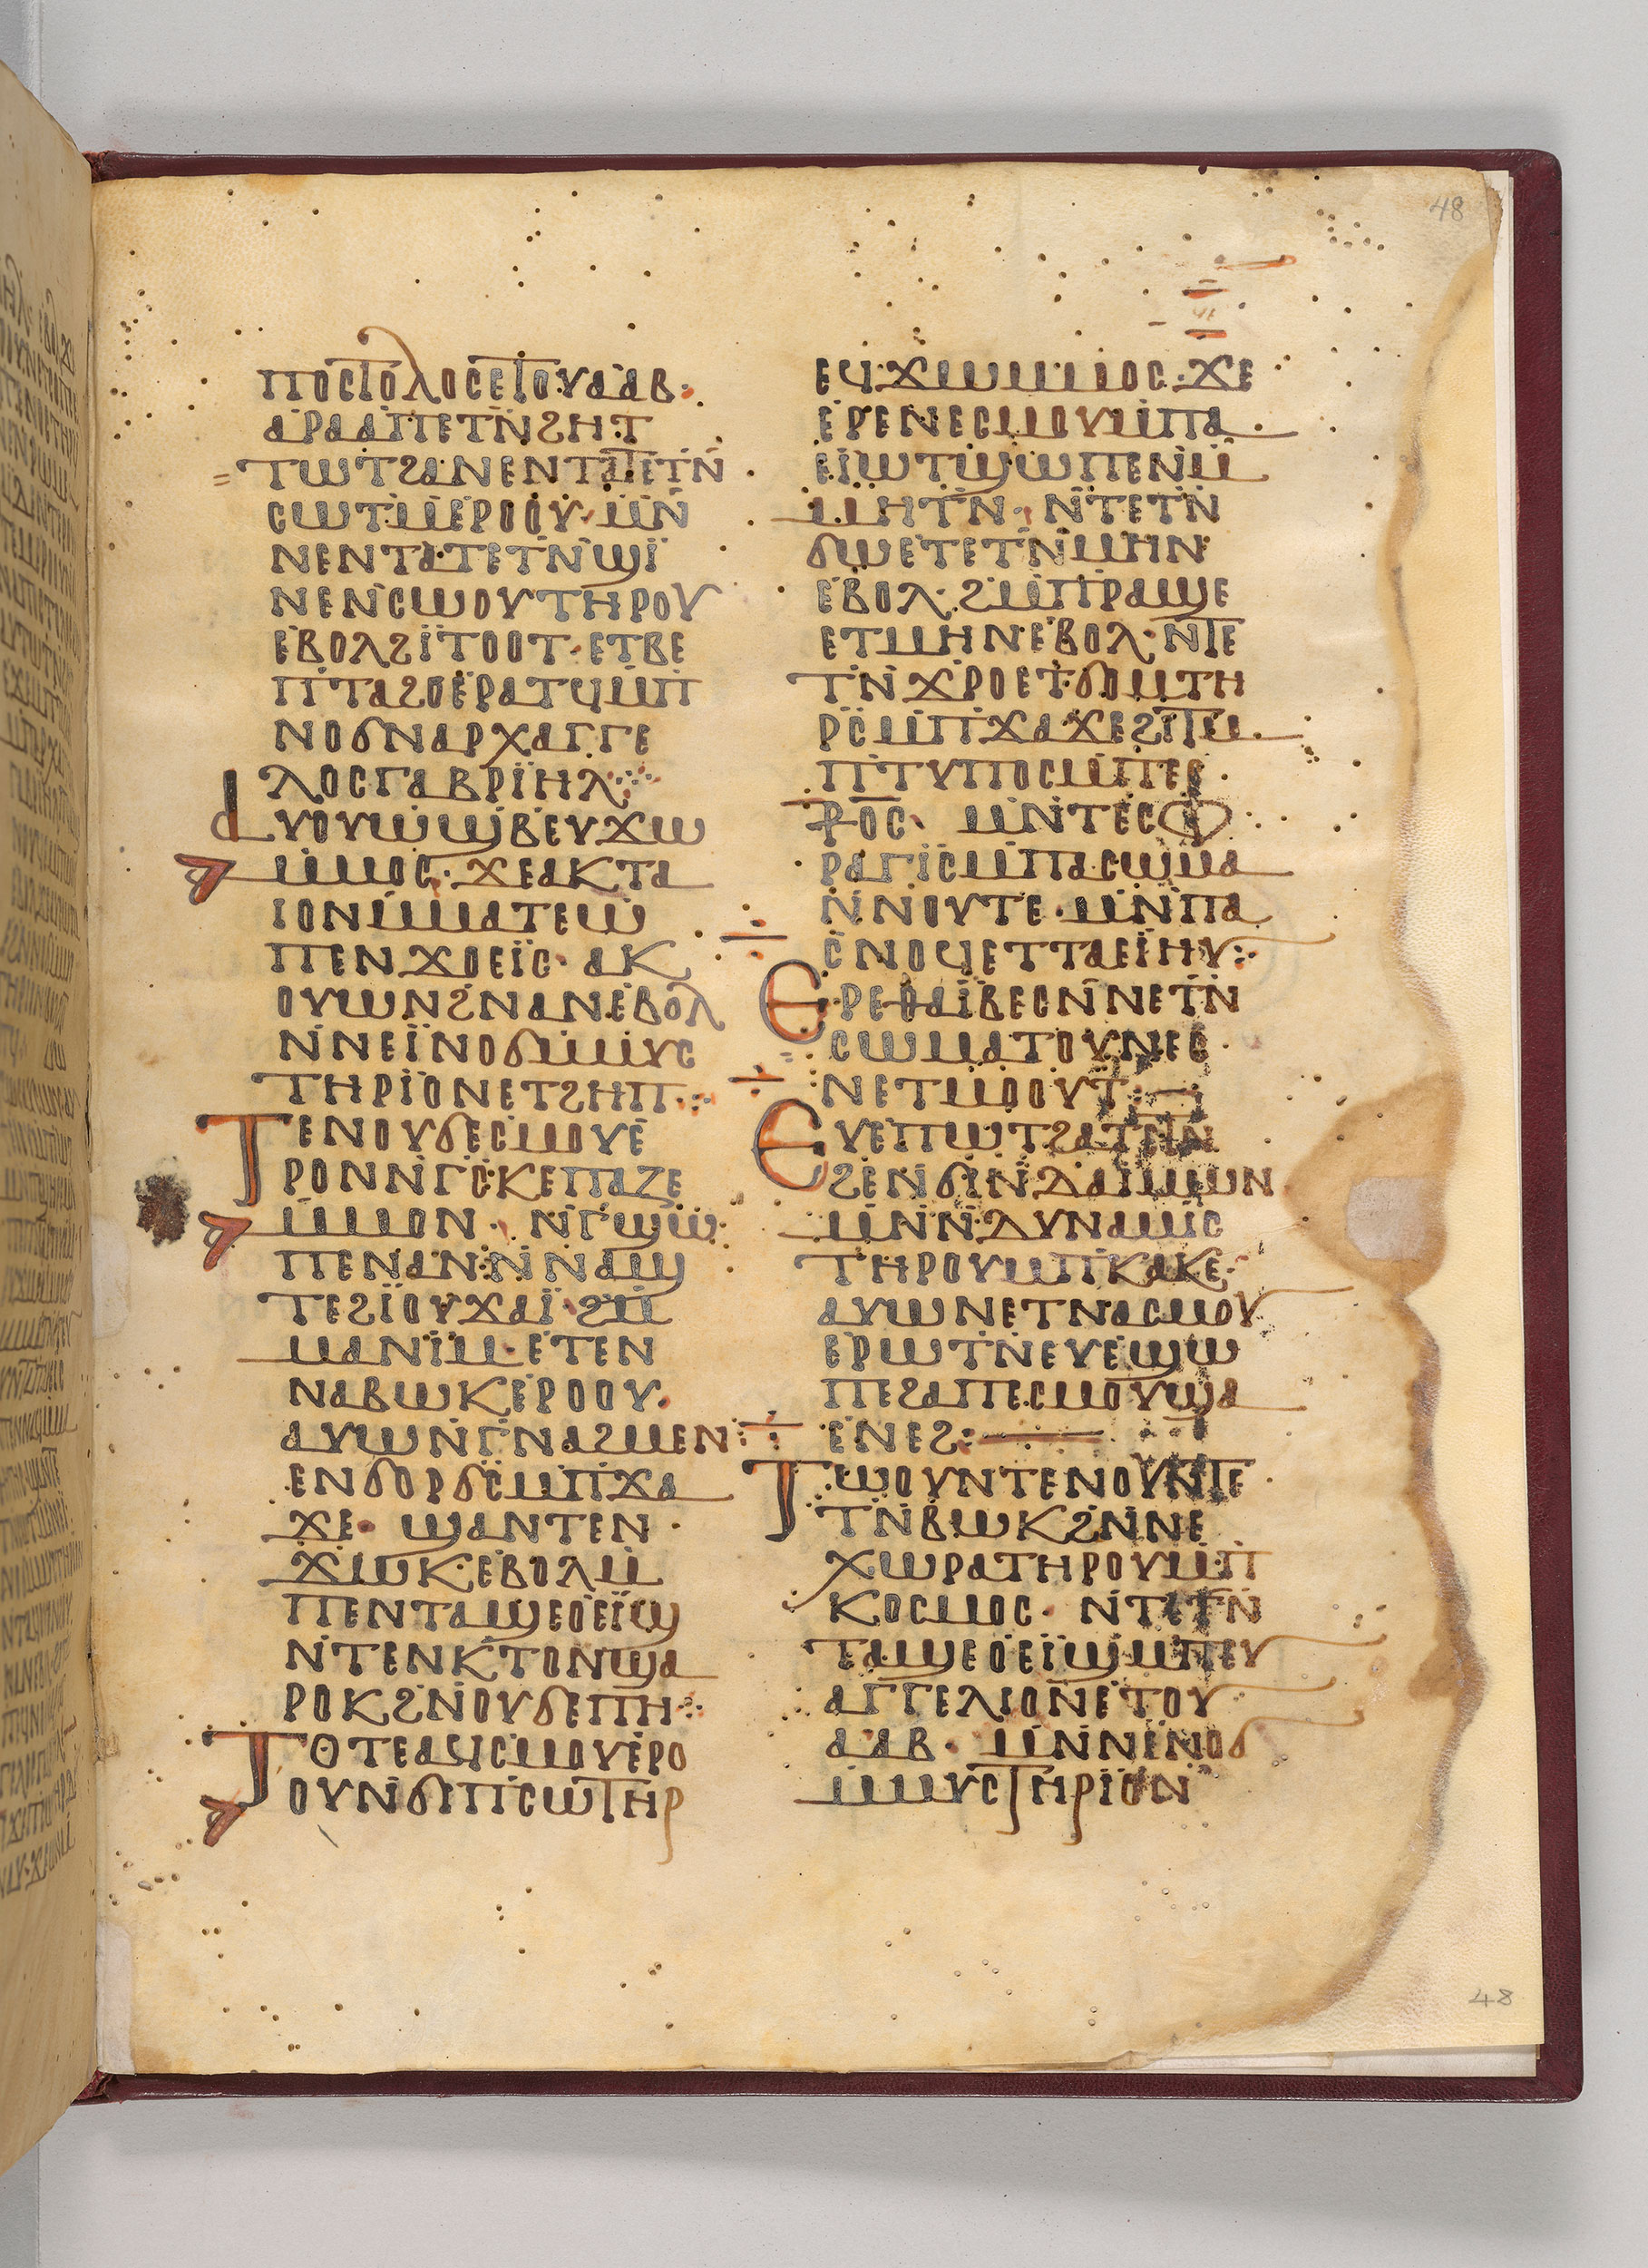 48
ⲡⲟⲥⲧⲟⲗⲟⲥⲉⲧⲟⲩⲁⲁⲃ·
ⲁⲣⲁⲁⲡⲉⲧⲛ̄ϩⲏⲧ
ⲧⲱⲧϩⲁⲛⲉⲛⲧⲁⲧⲉⲧⲛ̄
ⲥⲱⲧⲙⲉⲣⲟⲟⲩ· ⲙⲛ̄
ⲛⲉⲛⲧⲁⲧⲉⲧⲛ̄ϣⲓ̈
ⲛⲉⲛ̄ⲥⲱⲟⲩⲧⲏⲣⲟⲩ
ⲉⲃⲟⲗϩⲓ̈ⲧⲟⲟⲧ· ⲉⲧⲃⲉ
ⲡ̄ⲧⲁϩⲟⲉⲣⲁⲧϥⲙ̄ⲡ
ⲛⲟϭⲛⲁⲣⲭⲁⲅⲅⲉ
ⲗⲟⲥⲅⲁⲃⲣⲓ̈ⲏⲗ:
ⲁⲩⲟⲩⲱϣⲃⲉⲩϫⲱ
ⲙ̄ⲙⲟⲥ· ϫⲉⲁⲕⲧⲁ
ⲓⲟⲛⲙ̄ⲙⲁⲧⲉⲱ
ⲡⲉⲛϫⲟⲉⲓ̈ⲥ· ⲁⲕ
ⲟⲩⲱⲛϩ̄ⲛⲁⲛⲉⲃⲟⲗ
ⲛ̄ⲛⲉⲓ̈ⲛⲟϭⲙ̄ⲙⲩⲥ
ⲧⲏⲣⲓ̈ⲟⲛⲉⲧϩⲏⲡ:
ⲧⲉⲛⲟⲩϭⲉⲥⲙⲟⲩⲉ
ⲣⲟⲛⲛⲅ̄ⲥⲕⲉⲡⲁⲍⲉ
ⲙ̄ⲙⲟⲛ· ⲛⲅ̄ϣⲱ
ⲡⲉⲛⲁⲛ·ⲛ̄ⲛⲁϣ
ⲧⲉϩⲓ̈ⲟⲩϫⲁⲓ̈· ϩⲙ̄
ⲙⲁⲛⲓⲙ· ⲉⲧⲉⲛ
ⲛⲁⲃⲱⲕⲉⲣⲟⲟⲩ·
ⲁⲩⲱⲛⲅ̄ⲛⲁϩⲙⲉⲛ
ⲉⲛϭⲟⲣϭⲥ̄ⲙ̄ⲡϫⲁ
ϫⲉ· ϣⲁⲛⲧⲉⲛ
ϫⲱⲕ·ⲉⲃⲟⲗⲙ̄
ⲡⲉⲛⲧⲁϣⲉⲟⲉⲓ̈ϣ
ⲛ̄ⲧⲉⲛⲕⲧⲟⲛϣⲁ
ⲣⲟⲕϩⲛ̄ⲟⲩϭⲉⲡⲏ:
ⲧⲟⲧⲉⲁϥⲥⲙⲟⲩⲉⲣⲟ
ⲟⲩⲛ̄ϭⲓⲡⲥⲱⲧⲏⲣ
ⲉϥϫⲱⲙ̄ⲙⲟⲥ· ϫⲉ
ⲉⲣⲉⲡⲉⲥⲙⲟⲩⲙ̄ⲡⲁ
ⲉⲓ̈ⲱⲧϣⲱⲡⲉⲛⲙ̄
ⲙⲏⲧⲛ̄· ⲛ̄ⲧⲉⲧⲛ̄
ϭⲱⲉⲧⲉⲧⲛ̄ⲙⲏⲛ
ⲉⲃⲟⲗ· ϩⲙ̄ⲡⲣⲁϣⲉ
ⲉⲧⲙⲏⲛⲉⲃⲟⲗ· ⲛ̄ⲧⲉ
ⲧⲛ̄ϫⲣⲟⲉⲧϭⲟⲙⲧⲏ
ⲣⲥ̄ⲙ̄ⲡϫⲁϫⲉϩⲓⲧⲙ̄
ⲡⲧⲩⲡⲟⲥⲙ̄ⲡⲉⲥ
ⲣⲟⲥ· ⲙⲛ̄ⲧⲉⲥⲫ
ⲣⲁⲅⲓ̈ⲥⲙ̄ⲡⲁⲥⲱⲙⲁ
ⲛ̄ⲛⲟⲩⲧⲉ· ⲙⲛ̄ⲡⲁ
ⲥⲛⲟϥⲉⲧⲧⲁⲉⲓ̈ⲏⲩ:
ⲉⲣⲉⲑⲁⲓ̈ⲃⲉⲥⲛ̄ⲛⲉⲧⲛ̄
ⲥⲱⲙⲁⲧⲟⲩⲛⲉⲥ
ⲛⲉⲧⲙⲟⲟⲩⲧ:
ⲉⲩⲉⲡⲱⲧϩⲁⲧⲉⲧⲛ
ϩⲉⲛ̄ϭⲓⲛ̄ⲇⲁⲓⲙⲱⲛ
ⲙⲛ̄ⲛ̄ⲇⲩⲛⲁⲙⲓⲥ
ⲧⲏⲣⲟⲩⲙ̄ⲡⲕⲁⲕⲉ·
ⲁⲩⲱⲛⲉⲧⲛⲁⲥⲙⲟⲩ
ⲉⲣⲱⲧⲛ̄ⲉⲩⲉϣⲱ
ⲡⲉϩⲁⲡⲉⲥⲙⲟⲩϣⲁ
ⲉⲛⲉϩ:
ⲧⲱⲟⲩⲛⲧⲉⲛⲟⲩⲛ̄ⲧⲉ
ⲧⲛ̄ⲃⲱⲕϩⲛ̄ⲛⲉ
ⲭⲱⲣⲁⲧⲏⲣⲟⲩⲙ̄ⲡ
ⲕⲟⲥⲙⲟⲥ· ⲛ̄ⲧⲉⲧⲛ̄
ⲧⲁϣⲉⲟⲉⲓ̈ϣⲙ̄ⲡⲉⲩ
ⲁⲅⲅⲉⲗⲓⲟⲛⲉⲧⲟⲩ
ⲁⲁⲃ· ⲙⲛ̄ⲛⲉⲓ̈ⲛⲟϭ
ⲙ̄ⲙⲩⲥⲧⲏⲣⲓ̈ⲟⲛ
48